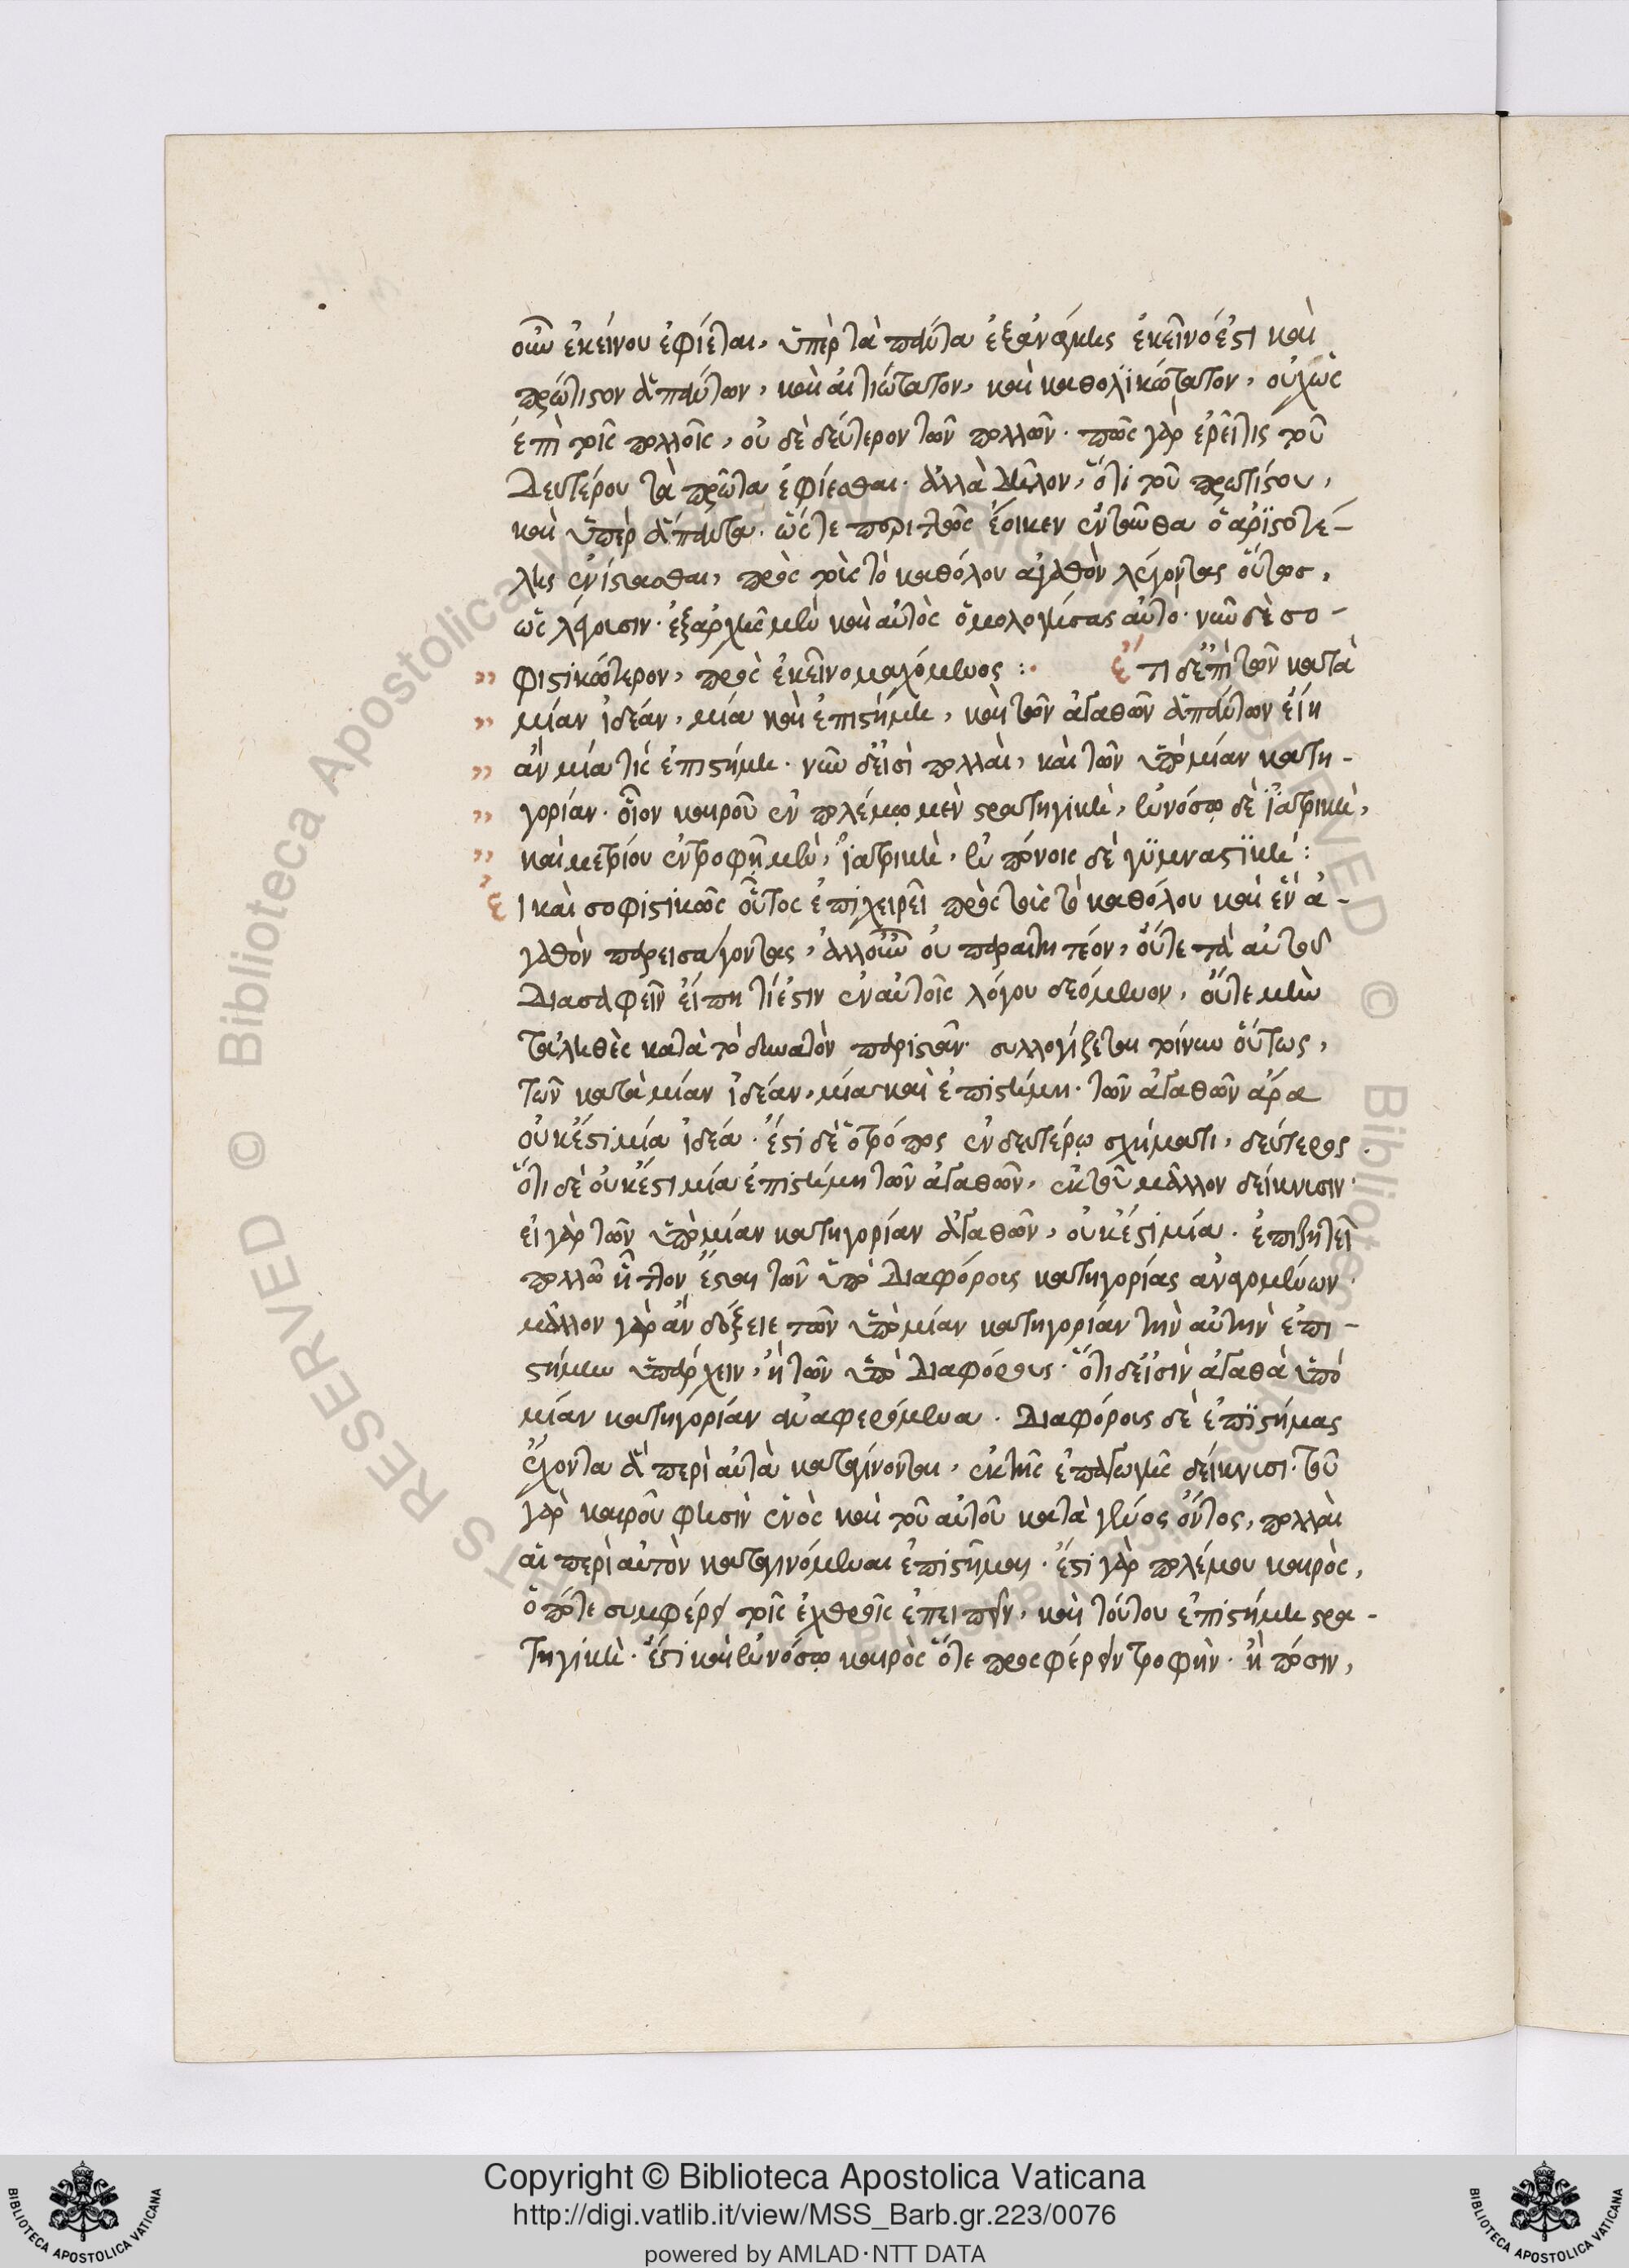 οὖν ἐκείνου ἐφίεται, ὑπὲρ τὰ πάντα ἐξανάγκης ἐκεῖνό ἐστι καὶ
πρώτιστον ἁπάντων, καὶ αἰτιώτατον, καὶ καθολικώτατον, οὐχ ὡς
ἐπὶ τοῖς πολλοῖς, οὐδὲ δεύτερον τῶν πολλῶν. πῶς γὰρ ἐρεῖ τις τοῦ
δευτέρου τὰ πρῶτα ἐφίεσθαι. ἀλλὰ δῆλον, ὅτι τοῦ πρωτίστου,
καὶ ὑπὲρ ἅπαντα. ὥστε περιττῶς ἔοικεν ἐνταῦθα ὁ ἀριστοτέ-
λης ἐνίστασθαι, πρὸς τοὺς τὸ καθόλου ἀγαθὸν λέγοντας οὕτως,
ὡς λέγουσιν. ἐξαρχῆς μὲν καὶ αὐτὸς ὁμολογήσας αὐτό. νῦν δὲ σο-
φιστικώτερον, πρὸς ἐκεῖνο μαχόμενος :. ἔτι δ' ἐπεὶ τῶν κατὰ
μίαν ἰδέαν, μία καὶ ἐπιστήμη, καὶ τῶν ἀγαθῶν ἁπάντων εἴη
ἂν μία τις ἐπιστήμη. νῦν δ' εἰσὶ πολλαὶ, καὶ τῶν ὑπὸ μίαν κατη-
γορίαν. οἷον καιροῦ ἐν πολέμῳ μὲν στρατηγικὴ, ἐν νόσῳ δὲ ἰατρικὴ,
καὶ μετρίου ἐν τροφῇ μὲν, ἰατρικὴ, ἐν πόνοις δὲ γυμναστικὴ :
Εἰ καὶ σοφιστικῶς οὗτος ἐπιχειρεῖ πρὸς τοὺς τὸ καθόλου καὶ ἓν ἀ-
γαθὸν παρεισάγοντας, ἀλλ' οὖν οὐ παραιτητέον, οὔτε τὰ αὐτοῦ
διασαφεῖν εἴ πη τί ἐστιν ἐν αὐτοῖς λόγου δεόμενον, οὔτε μὴν
τἀληθὲς κατὰ τὸ δυνατὸν παριστᾶν. συλλογίζεται τοίνυν οὕτως,
τῶν κατὰ μίαν ἰδέαν, μία καὶ ἐπιστήμη. τῶν ἀγαθῶν ἄρα
οὐκ ἔστι μία ἰδέα. ἔστι δὲ ὁ τρόπος ἐν δευτέρῳ σχήματι, δεύτερος.
ὅτι δὲ οὐκ ἔστι μία ἐπιστήμη τῶν ἀγαθῶν, ἐκ τοῦ μᾶλλον δείκνυσιν.
εἰ γὰρ τῶν ὑπὸ μίαν κατηγορίαν ἀγαθῶν, οὐκ ἔστι μία. ἐπιζητεῖ
πολλῷ ἧττον ἔσται τῶν ὑπὸ διαφόρους κατηγορίας ἀναγομένων.
μᾶλλον γὰρ ἂν δόξειε τῶν ὑπὸ μίαν κατηγορίαν τὴν αὐτὴν ἐπι-
στήμην ὑπάρχειν, ἢ τῶν ὑπὸ διαφόρους. ὅτι δ' εἰσὶν ἀγαθὰ ὑπὸ
μίαν κατηγορίαν ἀναφερόμενα. διαφόρους δὲ ἐπιστήμας
ἔχοντα αἳ περὶ αὐτὰ καταγίνονται, ἐκ τῆς ἐπαγωγῆς δείκνυσι. τοῦ
γὰρ καιροῦ φησὶν ἑνὸς καὶ τοῦ αὐτοῦ κατὰ γένος ὄντος, πολλαὶ
αἱ περὶ αὐτὸν καταγινόμεναι ἐπιστῆμαι. ἔστι γὰρ πολέμου καιρὸς,
ὁπότε συμφέρει τοῖς ἐχθροῖς ἐπεισιέναι, καὶ τούτου ἐπιστήμη στρα-
τηγικὴ. ἔστι καὶ ἐν νόσῳ καιρὸς ὅτε προσφέρειν τροφὴν. ἢ πόσιν,
Copyright © Biblioteca Apostolica Vaticana
http://digi.vatlib.it/view/MSS_Barb.gr.223/0076
powered by AMLAD·NTT DATA